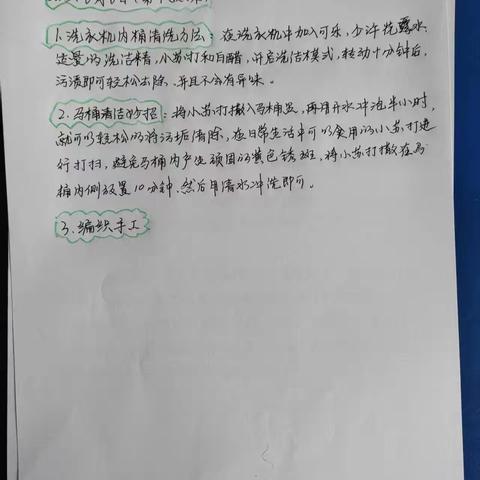 1.洗衣机内桶清洗方法：在洗衣机中加入可乐，少许花露水
适量的洗洁精，小苏打和白醋，开启洗洁模式，转动十分钟后，
污渍即可轻松去除，并且不会有异味。
2.马桶清洁妙招：将小苏打撒入马桶里，再用开水冲泡半小时，
就可以轻松的将污垢清除，在日常生活中可以使用的小苏打进
行打扫，避免马桶内产生顽固的黄色锈斑，将小苏打撒在马
桶内侧放置10分钟，然后用清水冲洗即可。
3.编织手工